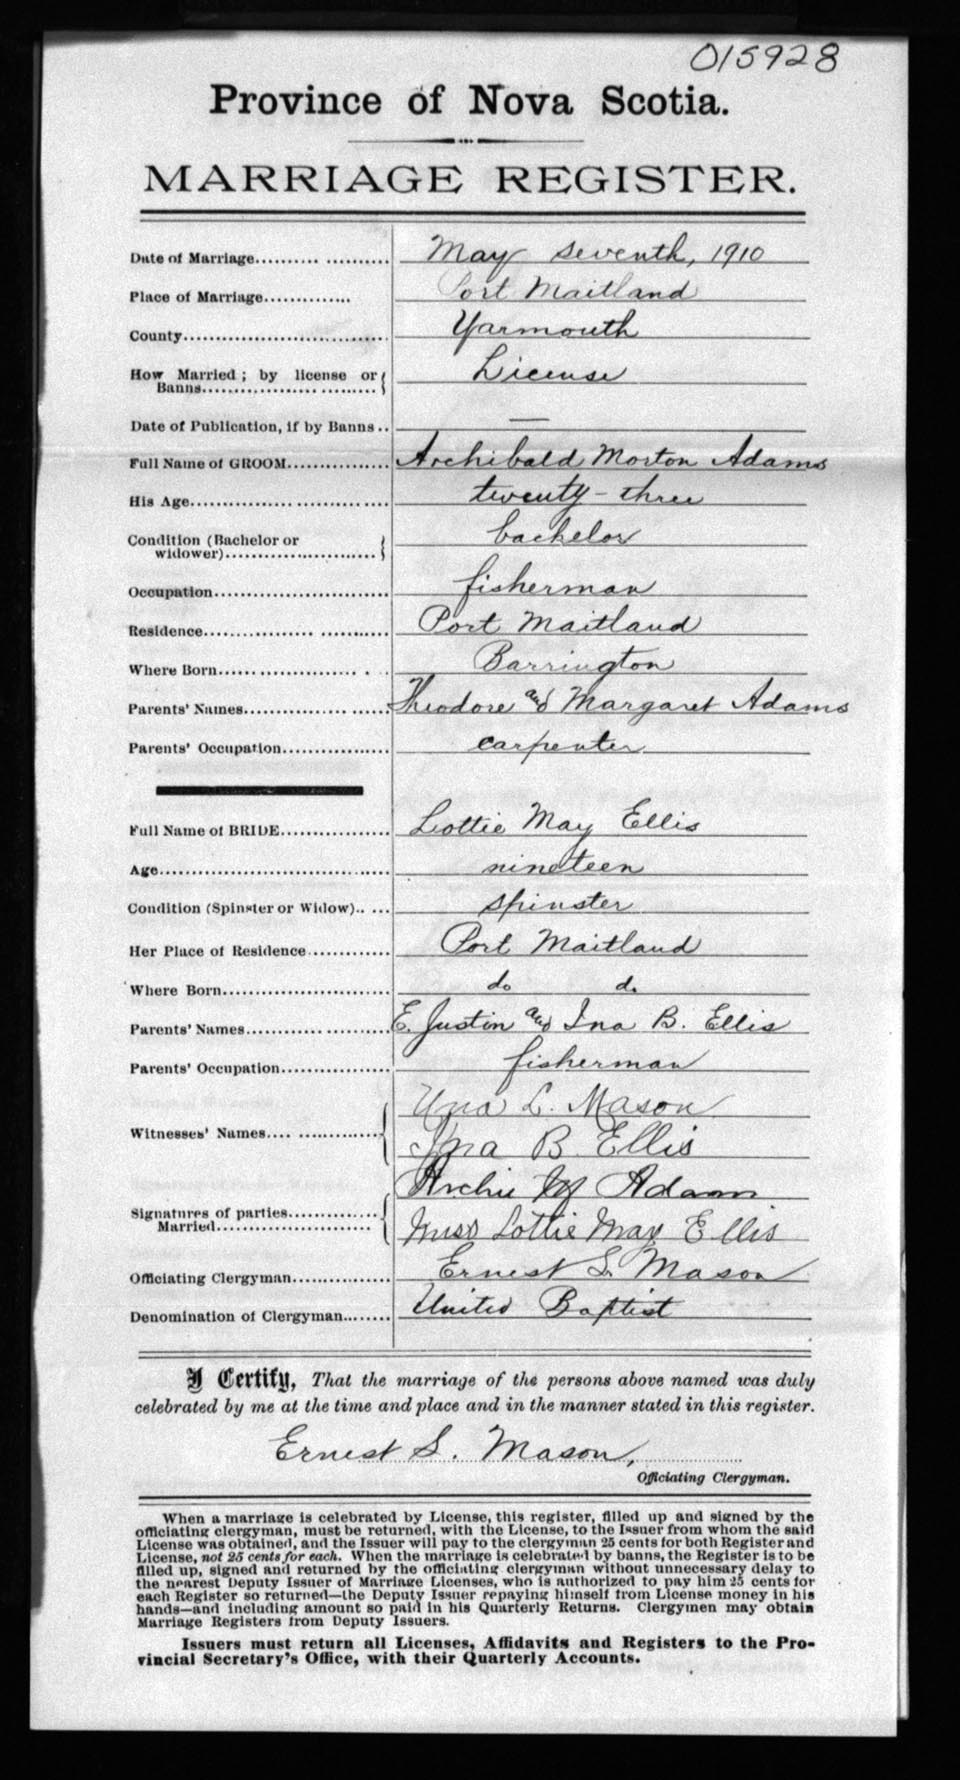 015928
Province of Nova Scotia.
MARRIAGE REGISTER.
Date of Marriage.................... May seventh, 1910
Place of Marriage.............. Port Maitland
County.............................. Yarmouth
How Married; by license or Banns.............................. License
Date of Publication, if by Banns.. —
Full Name of GROOM............... Archibald Morton Adams
His Age.............................. twenty-three
Condition (Bachelor or widower).............................. bachelor
Occupation.............................. fisherman
Residence.............................. Port Maitland
Where Born.............................. Barrington
Parents' Names.................... Theodore and Margaret Adams
Parents' Occupation................ carpenter
Full Name of BRIDE................ Lottie May Ellis
Age.............................. nineteen
Condition (Spinster or Widow)..... spinster
Her Place of Residence............. Port Maitland
Where Born......................... do do
Parents' Names.................... E. Justin and Ina B. Ellis
Parents' Occupation................ fisherman
Witnesses' Names.................... Una L. Mason
Ina B. Ellis
Signatures of parties Married.................... Archie M Adams
Miss Lottie May Ellis
Officiating Clergyman............... Ernest S. Mason
Denomination of Clergyman........ United Baptist
I Certify, That the marriage of the persons above named was duly
celebrated by me at the time and place and in the manner stated in this register.
Ernest S. Mason,
Officiating Clergyman.
When a marriage is celebrated by License, this register, filled up and signed by the
officiating clergyman, must be returned, with the License, to the Issuer from whom the said
License was obtained, and the Issuer will pay to the clergyman 25 cents for both Register and
License, not 25 cents for each. When the marriage is celebrated by banns, the Register is to be
filled up, signed and returned by the officiating clergyman without unnecessary delay to
the nearest Deputy Issuer of Marriage Licenses, who is authorized to pay him 25 cents for
each Register so returned—the Deputy Issuer repaying himself from License money in his
hands—and including amount so paid in his Quarterly Returns. Clergymen may obtain
Marriage Registers from Deputy Issuers.
Issuers must return all Licenses, Affidavits and Registers to the Pro-
vincial Secretary's Office, with their Quarterly Accounts.